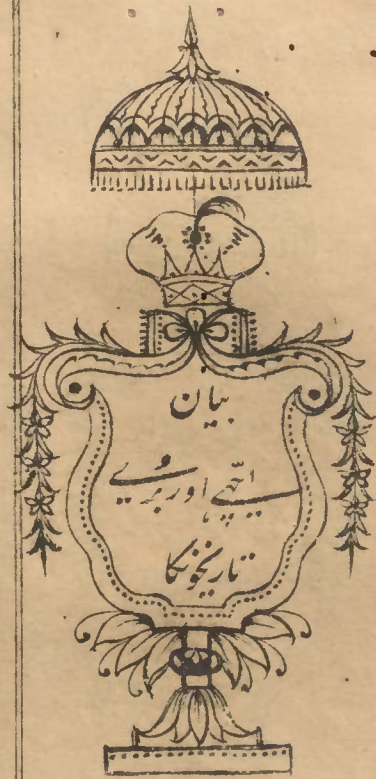 بیان
اچھے اور برے
تاریخونکا